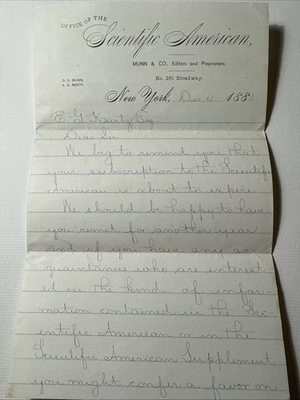 OFFICE OF THE
Scientific American,
MUNN & CO., Editors and Proprietors.
O. D. MUNN,
A. E. BEACH.
No. 361 Broadway.
New York, Dec 188
Esq.
Dear Sir
We beg to remind you that
your subscription to the Scientific
American is about to expire.
We should be happy to have
you remit for another year
and if you have any ac-
quaintances who are interest-
ed in the kind of infor-
mation contained in the Sci-
entific American or in the
Scientific American Supplement
you might confer a favor on